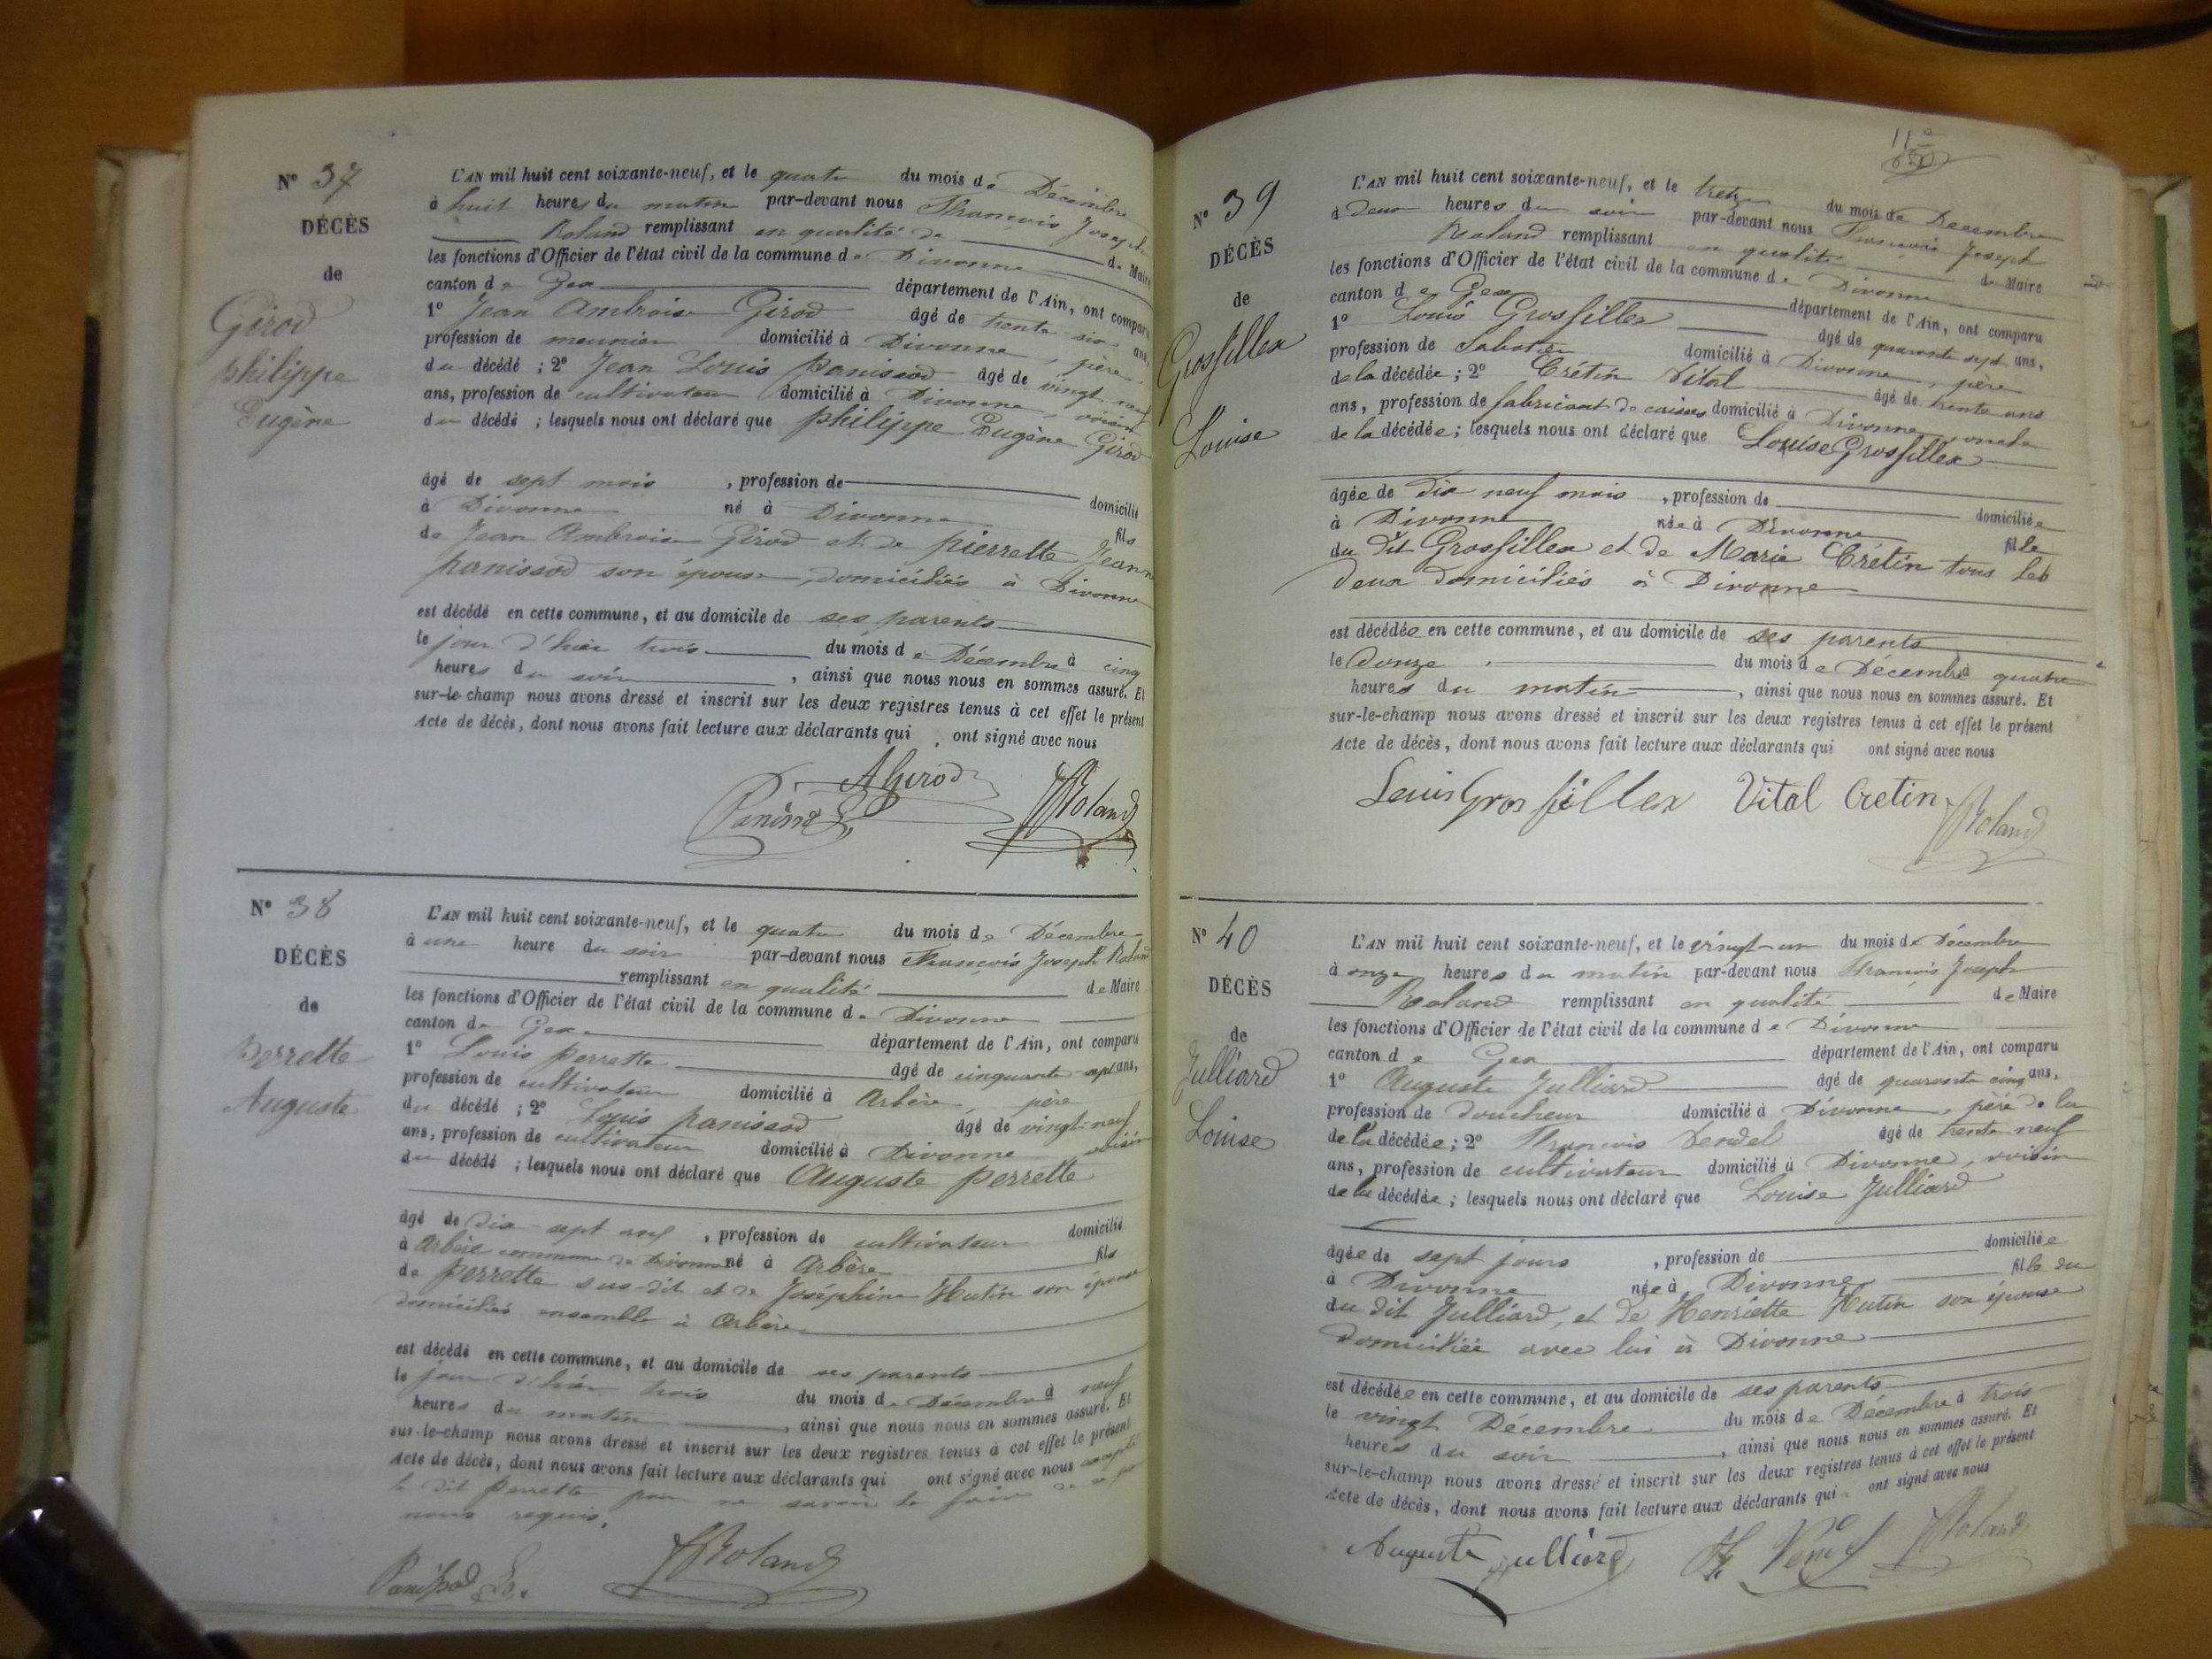 N° 37
DÉCÈS
de
Girod
philippe
Eugène
L'AN mil huit cent soixante-neuf, et le quatre du mois de Décembre
à huit heures du matin par-devant nous François Joseph
Roland remplissant en qualité de de Maire
les fonctions d'Officier de l'état civil de la commune de Divonne
canton de Gex département de l'Ain, ont comparu
1° Jean Ambroise Girod âgé de trente six ans,
profession de meunier domicilié à Divonne, père
du décédé ; 2° Jean Louis panissod âgé de vingt neuf
ans, profession de cultivateur domicilié à Divonne, voisin
du décédé ; lesquels nous ont déclaré que philippe Eugène Girod
âgé de sept mois , profession de domicilié
à Divonne né à Divonne fils
de Jean Ambroise Girod et de pierrette Jeanne
panissod son épouse, domiciliés à Divonne
est décédé en cette commune, et au domicile de ses parents
le jour d'hier trois du mois de Décembre à cinq
heures du soir , ainsi que nous nous en sommes assuré. Et
sur-le-champ nous avons dressé et inscrit sur les deux registres tenus à cet effet le présent
Acte de décès, dont nous avons fait lecture aux déclarants qui ont signé avec nous
A Girod
Panissod Ls JRoland
N° 38
DÉCÈS
de
perrette
Auguste
L'AN mil huit cent soixante-neuf, et le quatre du mois de Décembre
à une heure du soir par-devant nous François Joseph Roland
remplissant en qualité de Maire
les fonctions d'Officier de l'état civil de la commune de Divonne
canton de Gex département de l'Ain, ont comparu
1° Louis perrette âgé de cinquante-sept ans,
profession de cultivateur domicilié à Arbère, père
du décédé ; 2° Louis panissod âgé de vingt-neuf
ans, profession de cultivateur domicilié à Divonne voisin
du décédé ; lesquels nous ont déclaré que Auguste perrette
âgé de dix-sept ans , profession de cultivateur domicilié
à Arbère commune de Divonne né à Arbère fils
de perrette sus-dit et de Joséphine Hutin son épouse
domiciliés ensemble à Arbère
est décédé en cette commune, et au domicile de ses parents
le jour d'hier trois du mois de Décembre à neuf
heures du matin , ainsi que nous nous en sommes assuré. Et
sur-le-champ nous avons dressé et inscrit sur les deux registres tenus à cet effet le présent
Acte de décès, dont nous avons fait lecture aux déclarants qui ont signé avec nous excepté
le dit perrette pour ne savoir le faire de ce par
nous requis.
Panissod Ls. JRoland
11
N° 39
DÉCÈS
de
Grosfillex
Louise
L'AN mil huit cent soixante-neuf, et le treize du mois de Decembre
à deux heures du soir par-devant nous François Joseph
Roland remplissant en qualité de Maire
les fonctions d'Officier de l'état civil de la commune de Divonne
canton de Gex département de l'Ain, ont comparu
1° Louis Grosfillex âgé de quarante sept ans,
profession de Sabotier domicilié à Divonne, père
de la décédée ; 2° Crétin Vital âgé de trente ans
ans, profession de fabricant de caisses domicilié à Divonne, oncle
de la décédée ; lesquels nous ont déclaré que Louise Grosfillex
âgée de dix neuf mois , profession de domiciliée
à Divonne née à Divonne fille
du dit Grosfillex et de Marie Crétin tous les
deux domiciliés à Divonne
est décédée en cette commune, et au domicile de ses parents
le douze du mois de Décembre à quatre
heures du matin , ainsi que nous nous en sommes assuré. Et
sur-le-champ nous avons dressé et inscrit sur les deux registres tenus à cet effet le présent
Acte de décès, dont nous avons fait lecture aux déclarants qui ont signé avec nous
Louis Grosfillex Vital Cretin JRoland
N° 40
DÉCÈS
de
Julliard
Louise
L'AN mil huit cent soixante-neuf, et le vingt-un du mois de Décembre
à onze heures du matin par-devant nous François Joseph
Roland remplissant en qualité de Maire
les fonctions d'Officier de l'état civil de la commune de Divonne
canton de Gex département de l'Ain, ont comparu
1° Auguste Julliard âgé de quarante cinq ans,
profession de doucheur domicilié à Divonne, père de la
de la décédée ; 2° François Vendel âgé de trente neuf
ans, profession de cultivateur domicilié à Divonne, voisin
de la décédée ; lesquels nous ont déclaré que Louise Julliard
âgée de sept jours , profession de domiciliée
à Divonne née à Divonne fille du
du dit Julliard, et de Henriette Hutin son épouse
domiciliée avec lui à Divonne
est décédée en cette commune, et au domicile de ses parents
le vingt Décembre du mois de Décembre à trois
heures du soir , ainsi que nous nous en sommes assuré. Et
sur-le-champ nous avons dressé et inscrit sur les deux registres tenus à cet effet le présent
Acte de décès, dont nous avons fait lecture aux déclarants qui ont signé avec nous
Auguste Julliard JRoland